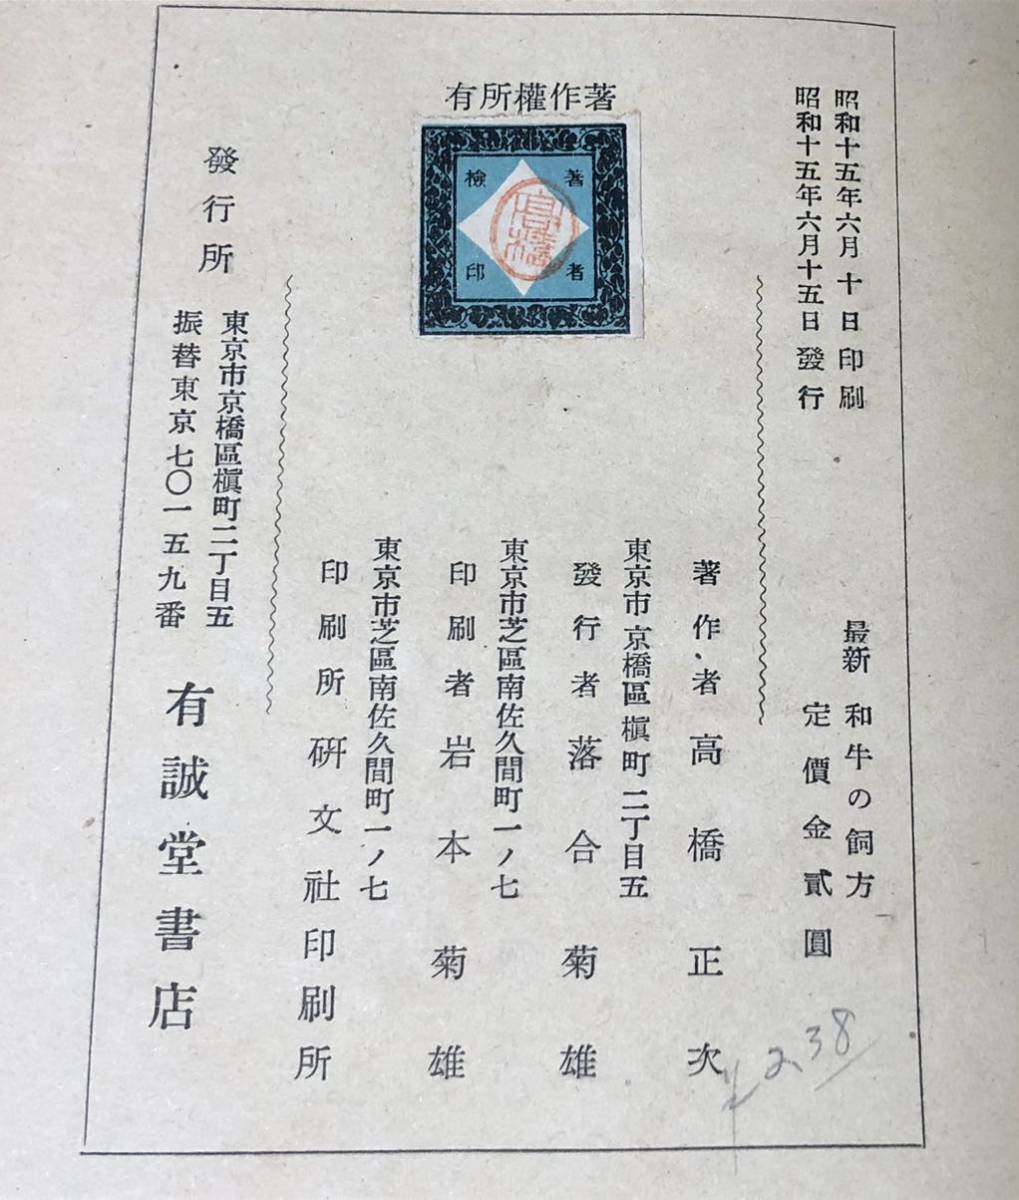 昭和十五年六月十日印刷
昭和十五年六月十五日發行
最新 和牛の飼方
定價金貳圓
著作權所有
著者檢印
高橋
著作者 高橋正次
東京市京橋區槇町二丁目五
發行者 落合菊雄
東京市芝區南佐久間町一ノ七
印刷者 岩本菊雄
東京市芝區南佐久間町一ノ七
印刷所 硏文社印刷所
發行所
東京市京橋區槇町二丁目五
振替東京七〇一五九番
有誠堂書店
2.38